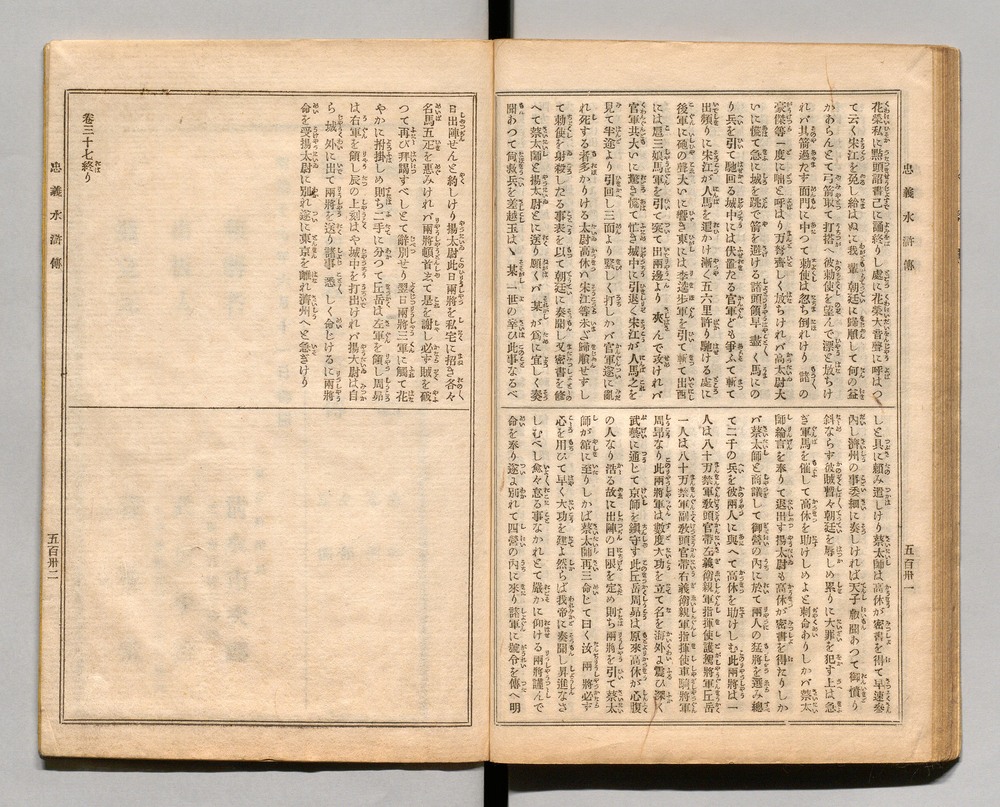 忠義水滸傳
五百卅一
花榮私に點頭詔書已に誦終りし處に花榮大音聲に呼はつ
て云く宋江を免し給はぬに我輩朝廷に歸順して何の益
かあらんとて弓箭取て打搭ひ彼勅使を望んで漂と放ちけ
れバ其箭過たず面門に中つて勅使は忽ち倒れけり諸の
豪傑等一度に喊と呼はり刀弩齊しく放ちけれバ高太尉大
いに慌て急に城を跳で箭を避ける諸頭領早盡く馬にの
り兵を引て馳回る城中には伏置たる官軍ども筆ふて斬て
出頻りに宋江が人馬を追かけ漸く五六里許り馳ける處に
後軍に確の聲大いに響き東には李逵歩軍を引て斬て出西
には扈三娘馬軍を引て突て出兩邊より夾んで攻けれバ
官軍共大いに驚き慌て忙き城中に引退く宋江が人馬之を
見て半途より引回し三面より緊しく打しかバ官軍遂に亂
れ死する者多かりける太尉高俅ハ宋江等未だ歸順せずし
て勅使を射殺したる事表を以て朝廷に奏聞し又密書を修
へて蔡太師と揚太尉とに送り願くバ某が爲に宜しく奏
聞あつて尚救兵を差越玉はヾ某一世の幸ひ此事なるべ
しと具に頼み遣しけり蔡太師は高俅が密書を得て早速參
内し濟州の事委細に奏しければ天子叡聞あつて御憤り
斜ならず彼賊暫々朝廷を辱しめ累りに大罪を犯す上は急
ぎ軍馬を催して高俅を助けしめよと勅命ありしかバ蔡太
師綸言を奉りて退出す揚太尉も高俅が密書を得たりしか
バ蔡太師と商議して御營の内に於て兩人の猛將を選み總
て二千の兵を彼兩人に與へて高俅を助けしむ此兩將は一
人は八十万禁軍敎頭官帶左義衛親軍指揮使護駕將軍丘岳
一人は八十万禁軍副敎頭官帶右義衛親軍指揮使車騎將軍
周昻なり此兩將軍は數度大功を立て名を海外よ震ひ深く
武藝に通じて京師を鎭守す此丘岳周昻は原來高俅が心腹
の人なり浩る故に出陣の日限を定め則ち兩將を引て蔡太
師が舘に至りしかば蔡太師再三命じて曰く汝兩將必ず
心を用ひて早く大功を建よ然らば我帝に奏聞し昇進なさ
しむべし兪々怠る事なかれとて嚴かに仰ける兩將謹んで
命を奉り遂よ別れて四營の内に來り諸軍に號令を傳へ明
日出陣せんと約しけり揚太尉此日兩將を私宅に招き各々
名馬五疋を惠みけれバ兩將頓首して是を謝し必ず賊を破
つて再び拜謁すべしとて辭別せり翌日兩將三軍に觸て花
やかに拵掛しめ則ち二手に分つて丘岳は左軍を領し周昻
は右軍を領し辰の上刻はや城中を打出けれバ揚太尉は自
ら城外に出て兩將を送り諸事悉しく命じけるに兩將
命を受揚太尉に別れ遂に東京を離れ濟州へと急ぎけり
卷三十七終り
忠義水滸傳
五百卅二